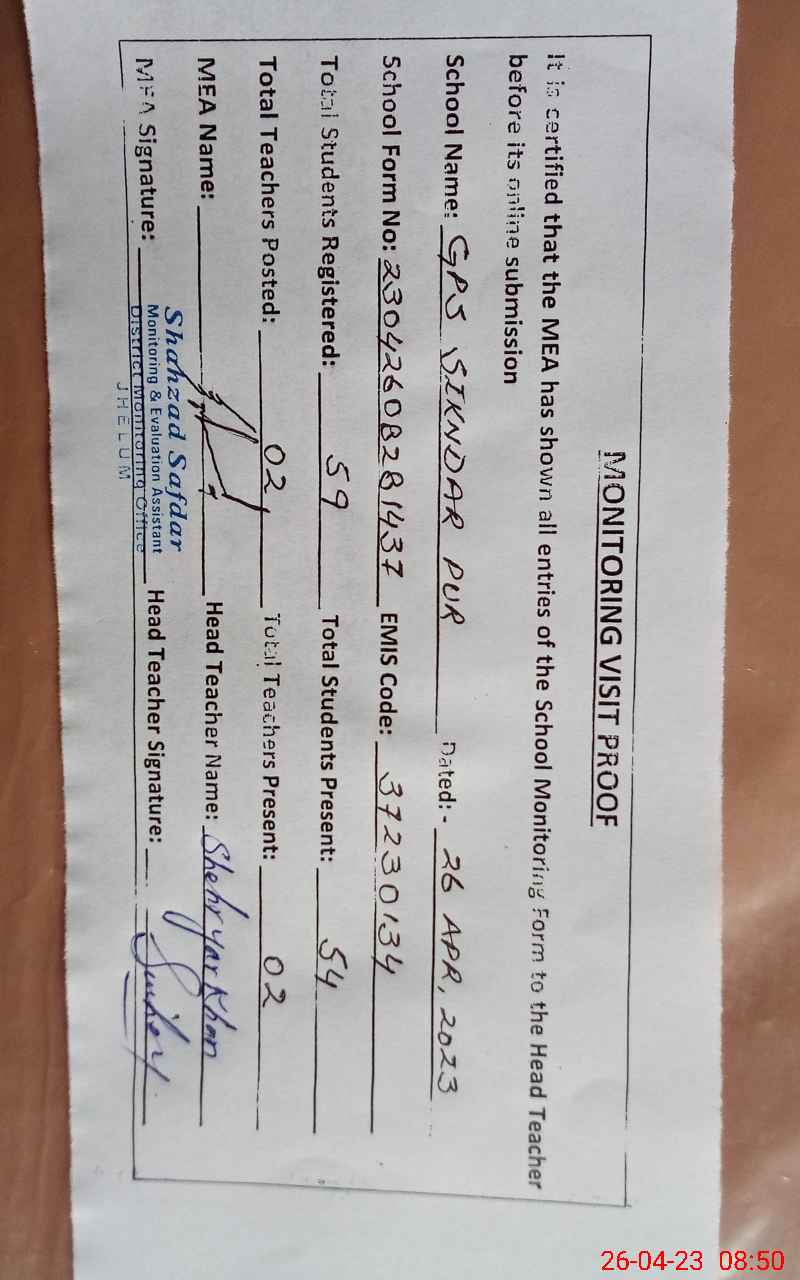 MONITORING VISIT PROOF
It is certified that the MEA has shown all entries of the School Monitoring Form to the Head Teacher
before its online submission
School Name: GPS SIKNDAR PUR Dated:- 26 APR, 2023
School Form No: 23042608281437 EMIS Code: 37230134
Total Students Registered: 59 Total Students Present: 54
Total Teachers Posted: 02 Total Teachers Present: 02
MEA Name: Head Teacher Name: Shehryar Khan
MEA Signature: Head Teacher Signature:
Shahzad Safdar
Monitoring & Evaluation Assistant
District Monitoring Office
JHELUM
26-04-23 08:50